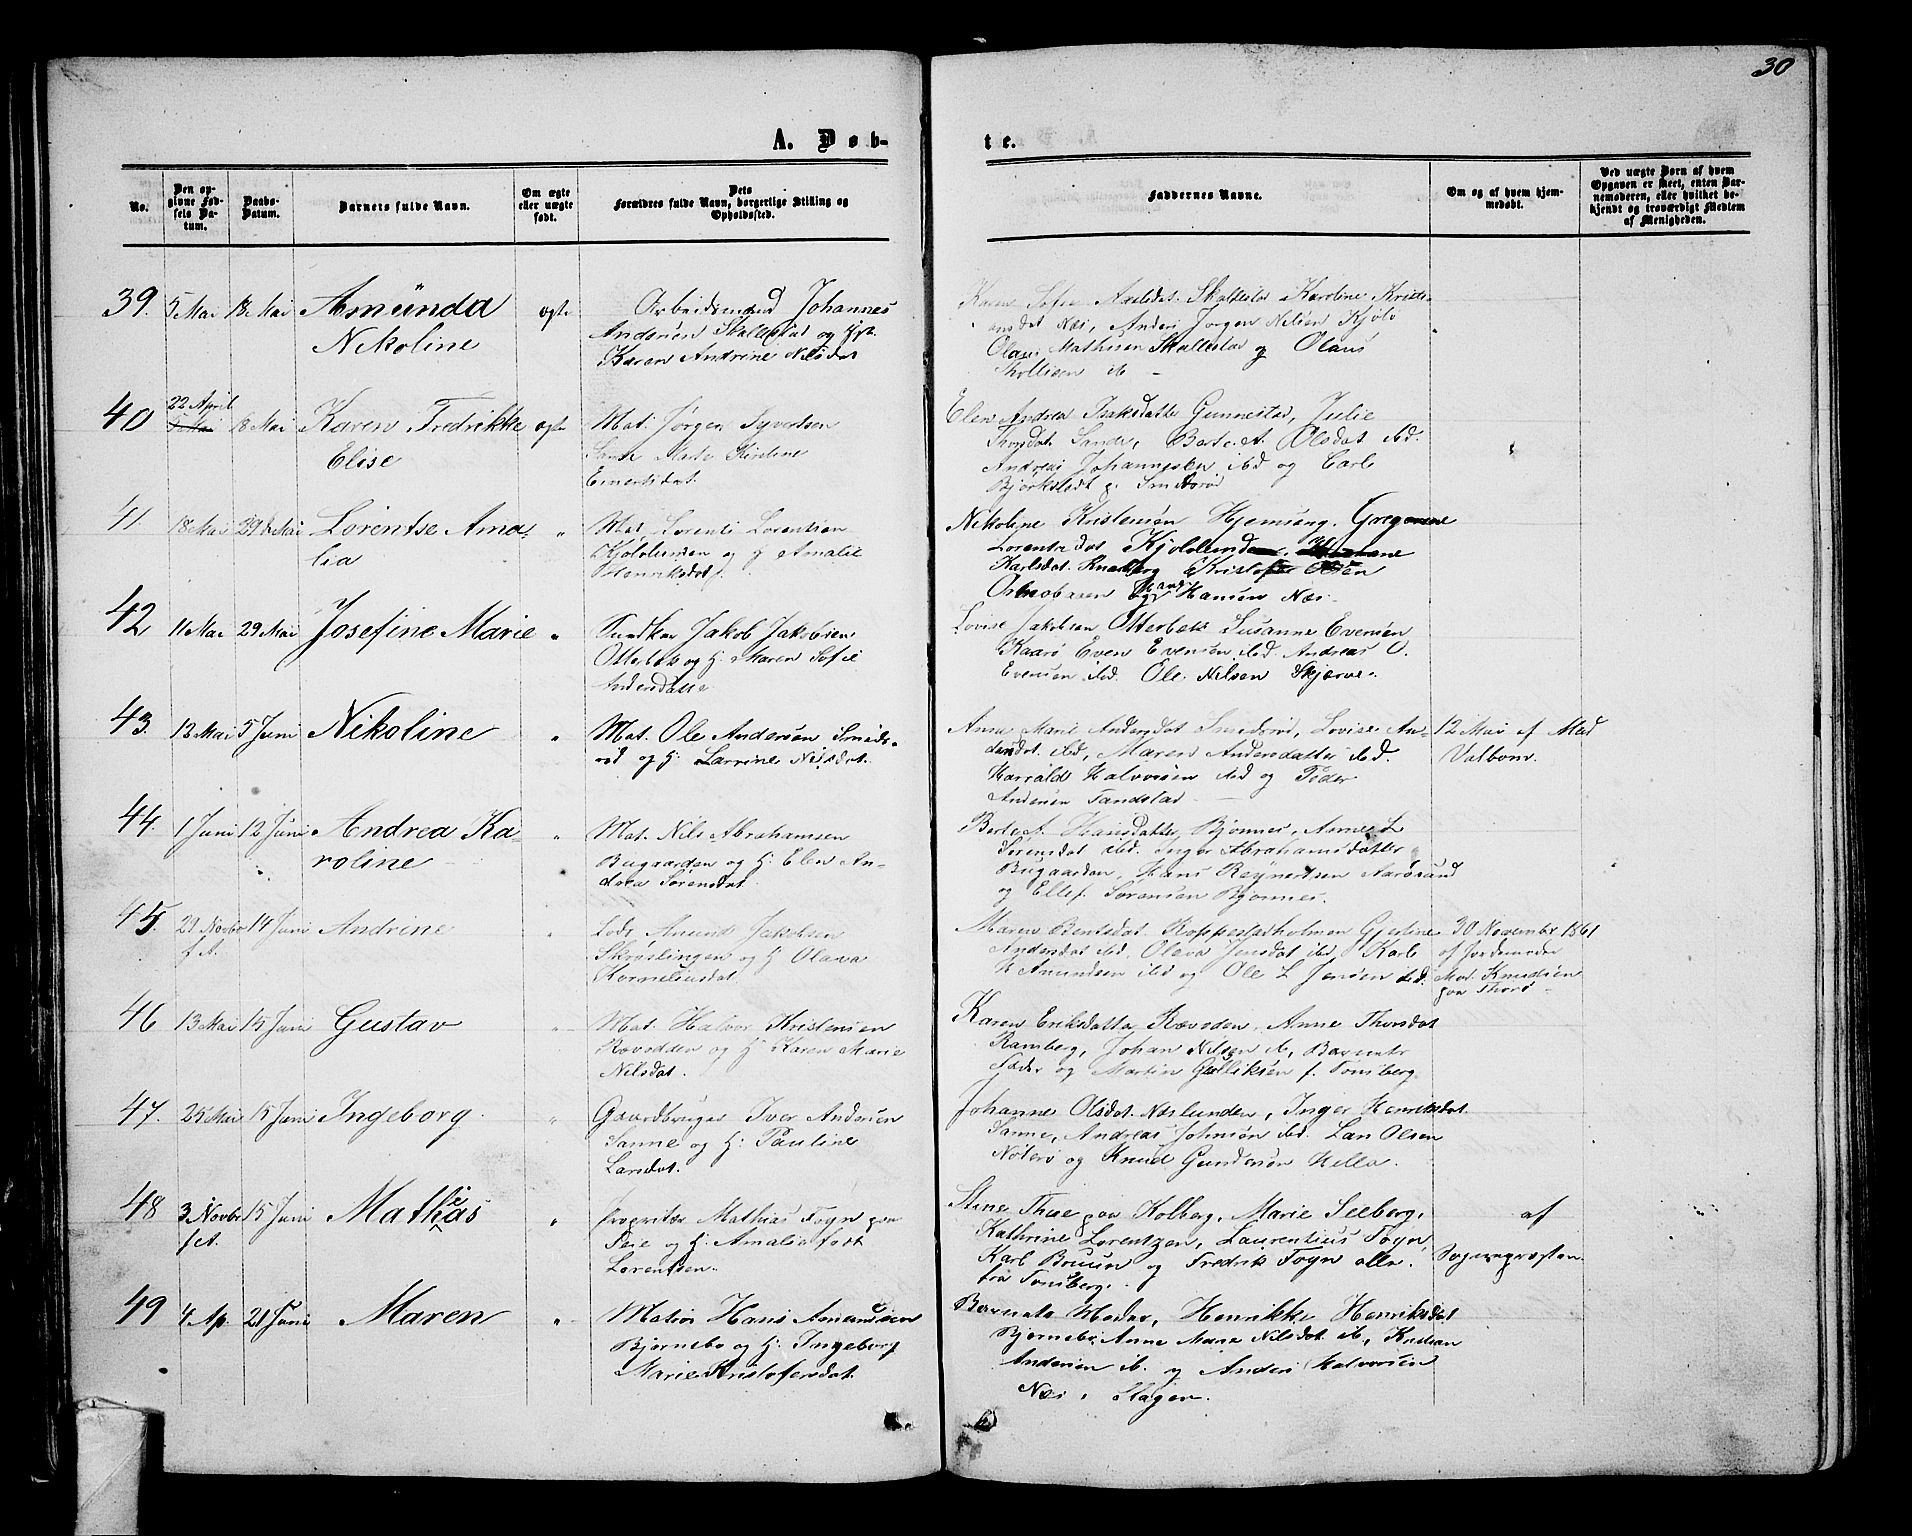 30
A. Døb-
te.
No.
Den op-
givne Fød-
sels Da-
tum.
Daabs-
Datum.
Barnets fulde Navn.
Om ægte
eller uægte
født.
Dets
Forældres fulde Navn, borgerlige Stilling og
Opholdssted.
Faddernes Navne.
Om og af hvem hjem-
medøbt.
Ved uægte Børn af hvem
Opgaven er skeet, enten Bar-
nemoderen, eller hvilket be-
kjendt og troværdigt Medlem
af Menigheden.
39. 5 Mai 18 Mai Amünda
Nikoline
ægte
Arbeidsmand Johannes
Andersen Skallestad og Hst.
Karen Andrine Nilsdat
Karen Sofie Axelsdat. Skallestad Karoline Kristi-
ansdat Næs, Anders Jørgen Nilsen Kjölö
Olaus Mathisen Skallestad og Olaus
ib –
40 22 April
5 Mai
18 Mai Karen Fredrikke
Elise
ægte
Mat. Jørgen Syvertsen
Sande Kirstine
Einertsdat.
Elen Andrea Isaksdatter Gunnestad, Julie
Thorsdat Sande, Berte A. Olsdat ibd.
Andreas Johannesen ibd og Carl
Bjerkstedt p. Smidsrød
41 18 Mai 29 de Mai Lorentse Ama-
lia
"
Mat. Lorents Lorentsen
Kjøblunden og H Amalie
Henriksdat.
Nikoline Kristensen Hjemseng. Gregorine
Lorents dat Kjøblund
Karlsdat. Ramberg Kristofer Olsen
og Hans Hansen Næs.
42 11 Mai 29 Mai Josefine Marie "
Jakob Jakobsen
Otterbæk og H. Maren Sofie
Andersdatter
Lovise Jakobsen Otterbæk Susanne Evensen
Kaarø Even Evensen ibd. Andreas O.
Evensen ibd. Ole Nilsen Skjærve.
43. 12 Mai 5 Juni Nikoline "
Mat. Ole Andersen Smids-
rød og H. Lavrine Nilsdat.
Anne Marie Andersdat Smidsrød, Lovise An-
dersdat. ibd, Maren Andersdatter ibd.
Harrald Halvorsen ibd og Peder
Andersen Tandstad
12 Mai af Mad
Valbom.
44. 1 Juni 12 Juni Andrea Ka-
roline
"
Mat. Nils Abrahamsen
Bugaarden og H. Elen An-
drea Sørensdat.
Berte A. Hansdatter Bjønnes, Anne L
Sørensdat ibd. Inger Abrahamsdatter
Bugaarden, Hans Reynertsen Aarøsund
og Ellef Sørensen Bjønnes.
45. 29 Novbr
f.A.
14 Juni Andrine "
Lods Amund Jakobsen
Skrøslingen og H Olava
Korneliusdat.
Maren Bentsdat. Roppestadholmen Gjertine
Andersdat ibd. Olava Jensdat ibd Karl
H Amundsen ibd og Ole L Jensen ibd.
30 November 1861
af Jordemoder
Mad. Knudsen
paa Thorø
46 13 Mai 15 Juni Gustav "
Mat. Halvor Kristensen
Rævodden og H Karen Marie
Nilsdat.
Karen Eriksdatter Rævodden, Anne Thorsdat
Ramberg, Johan Nilsen ib, Barnets
Fader og Martin Gulliksen f. Tønsberg
47. 25 Mai 15 Juni Ingeborg. "
Gaardbruger Iver Andersen
Sanne og H. Pauline
Larsdat.
Johanne Olsdat. Næslunden, Inger Henriksdat
Sanne, Andreas Johnsen ibd. Lars Olsen
Nøterø og Knud Gundersen Hella.
48 3 Novbr
f.A.
15 Juni Mathias "
Proprietær Mathias Fogn paa
Teie og H. Amalie født
Lorentsen
Stine Thue paa Kolberg, Marie Seeberg,
Kathrine Lorentzen, Laurentius Fogn,
Karl Bruun og Fredrik Fogn alle
fra Tønsberg.
af
Sognepræsten
49 4 Ap. 21 Juni Maren "
Matros Hans Amundsen
Bjørnebo og H. Ingeborg
Marie Kristofersdat.
Barnets Moder, Henrikke Henriksdat
Bjørnebo, Anne Marie Nilsdat ib, Kristian
Andersen ib. og Anders Halvorsen
Næs i Slagen.